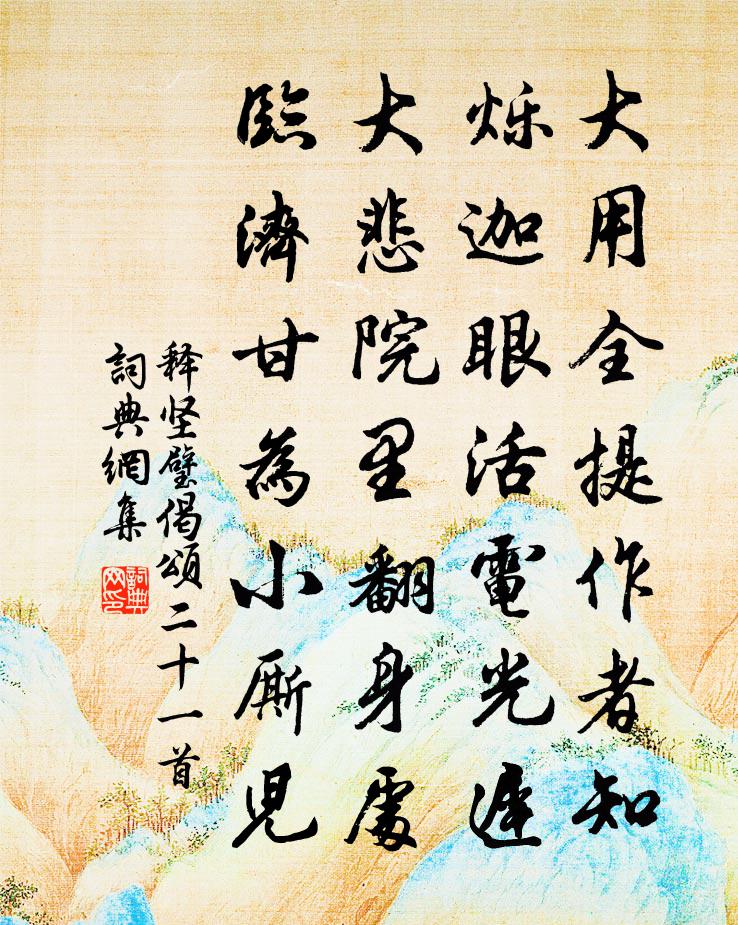 大用全提作者知
烁迦眼活電光遲
大悲院里翻身處
臨濟甘為小厮兒
释坚璧偈頌二十一首
詞典網集
詞典网印